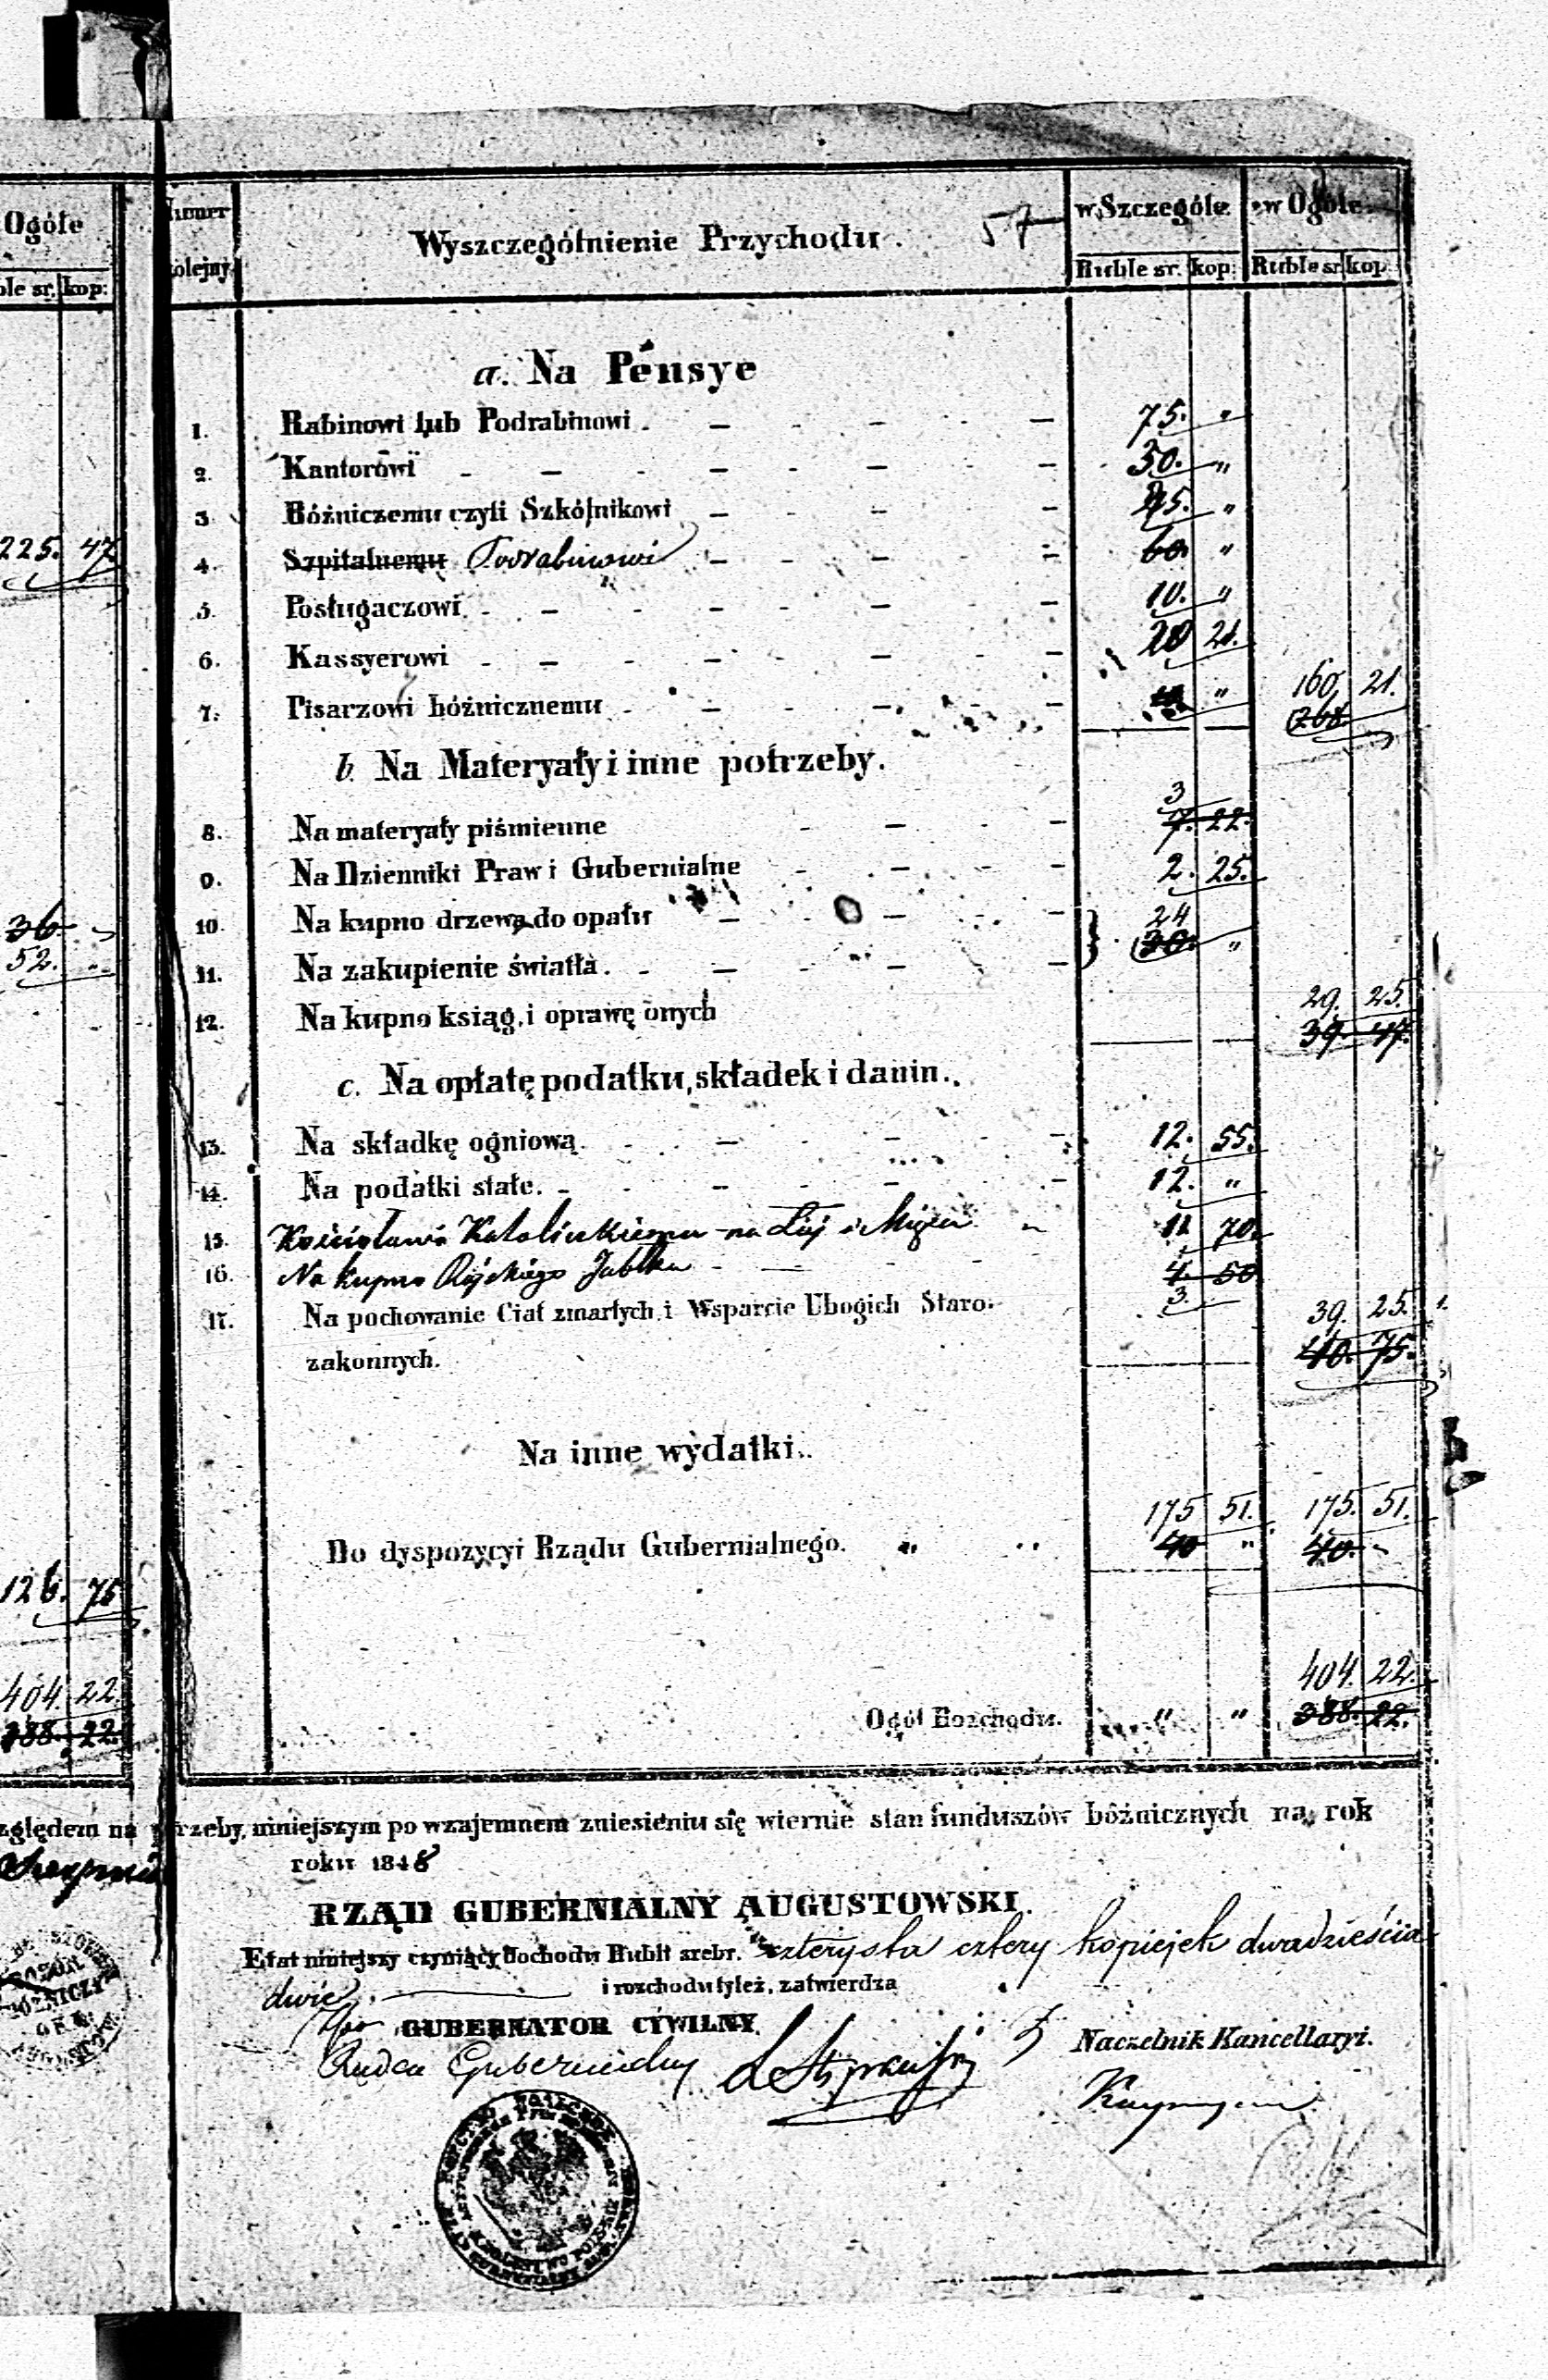 Ogóle
ble sr. kop:
225. 47
36.
52. "
126. 75
404. 22.
388. 22.
Numer kolejny
Wyszczególnienie Przychodu. 57
w Szczególe w Ogóle
Ruble sr. kop: Ruble sr. kop.
a. Na Pensye
1. Rabinowi lub Podrabinowi. 75. "
2. Kantorowi 30. "
3. Bóźniczemu czyli Szkólnikowi 25. "
4. Szpitalnemu Podrabinowi 60. "
5. Posługaczowi. 10. "
6. Kassyerowi 20 21.
7. Pisarzowi bóźnicznemu " 160, 21.
268.
b. Na Materyały i inne potrzeby.
3
8. Na materyały piśmienne 7. 22.
9. Na Dzienniki Praw i Gubernialne 2. 25.
10. Na kupno drzewa do opału 24
30. "
11. Na zakupienie światła.
12. Na kupno ksiąg, i oprawę onych 29. 25.
39. 47.
c. Na opłatę podatku, składek i danin.
13. Na składkę ogniową. 12. 55.
14. Na podatki stałe. 12. "
15. Kościołowi Katolickiemu na Łój i 11 70.
16. Na kupno Rajskiego Jabłka 4. 50
3.
17. Na pochowanie Ciał zmarłych i Wsparcie Ubogich Staro- 39. 25.
zakonnych. 40. 75.
Na inne wydatki.
175 51. 175. 51.
Do dyspozycyi Rządu Gubernialnego. 40 " 40. -
404. 22.
Ogół Rozchodu. " " 388. 22.
względem na potrzeby, niniejszym po wzajemnem zniesieniu się wiernie stan funduszów bóżnicznych na rok
Sierpnia roku 1848
RZĄD GUBERNIALNY AUGUSTOWSKI.
Etat niniejszy czyniący dochodu Rubli srebr. czterysta cztery kopiejek dwadzieścia
dwie i rozchodu tyleż, zatwierdza
GUBERNATOR CYWILNY.
Radca Gubernialny
Naczelnik Kancellaryi.